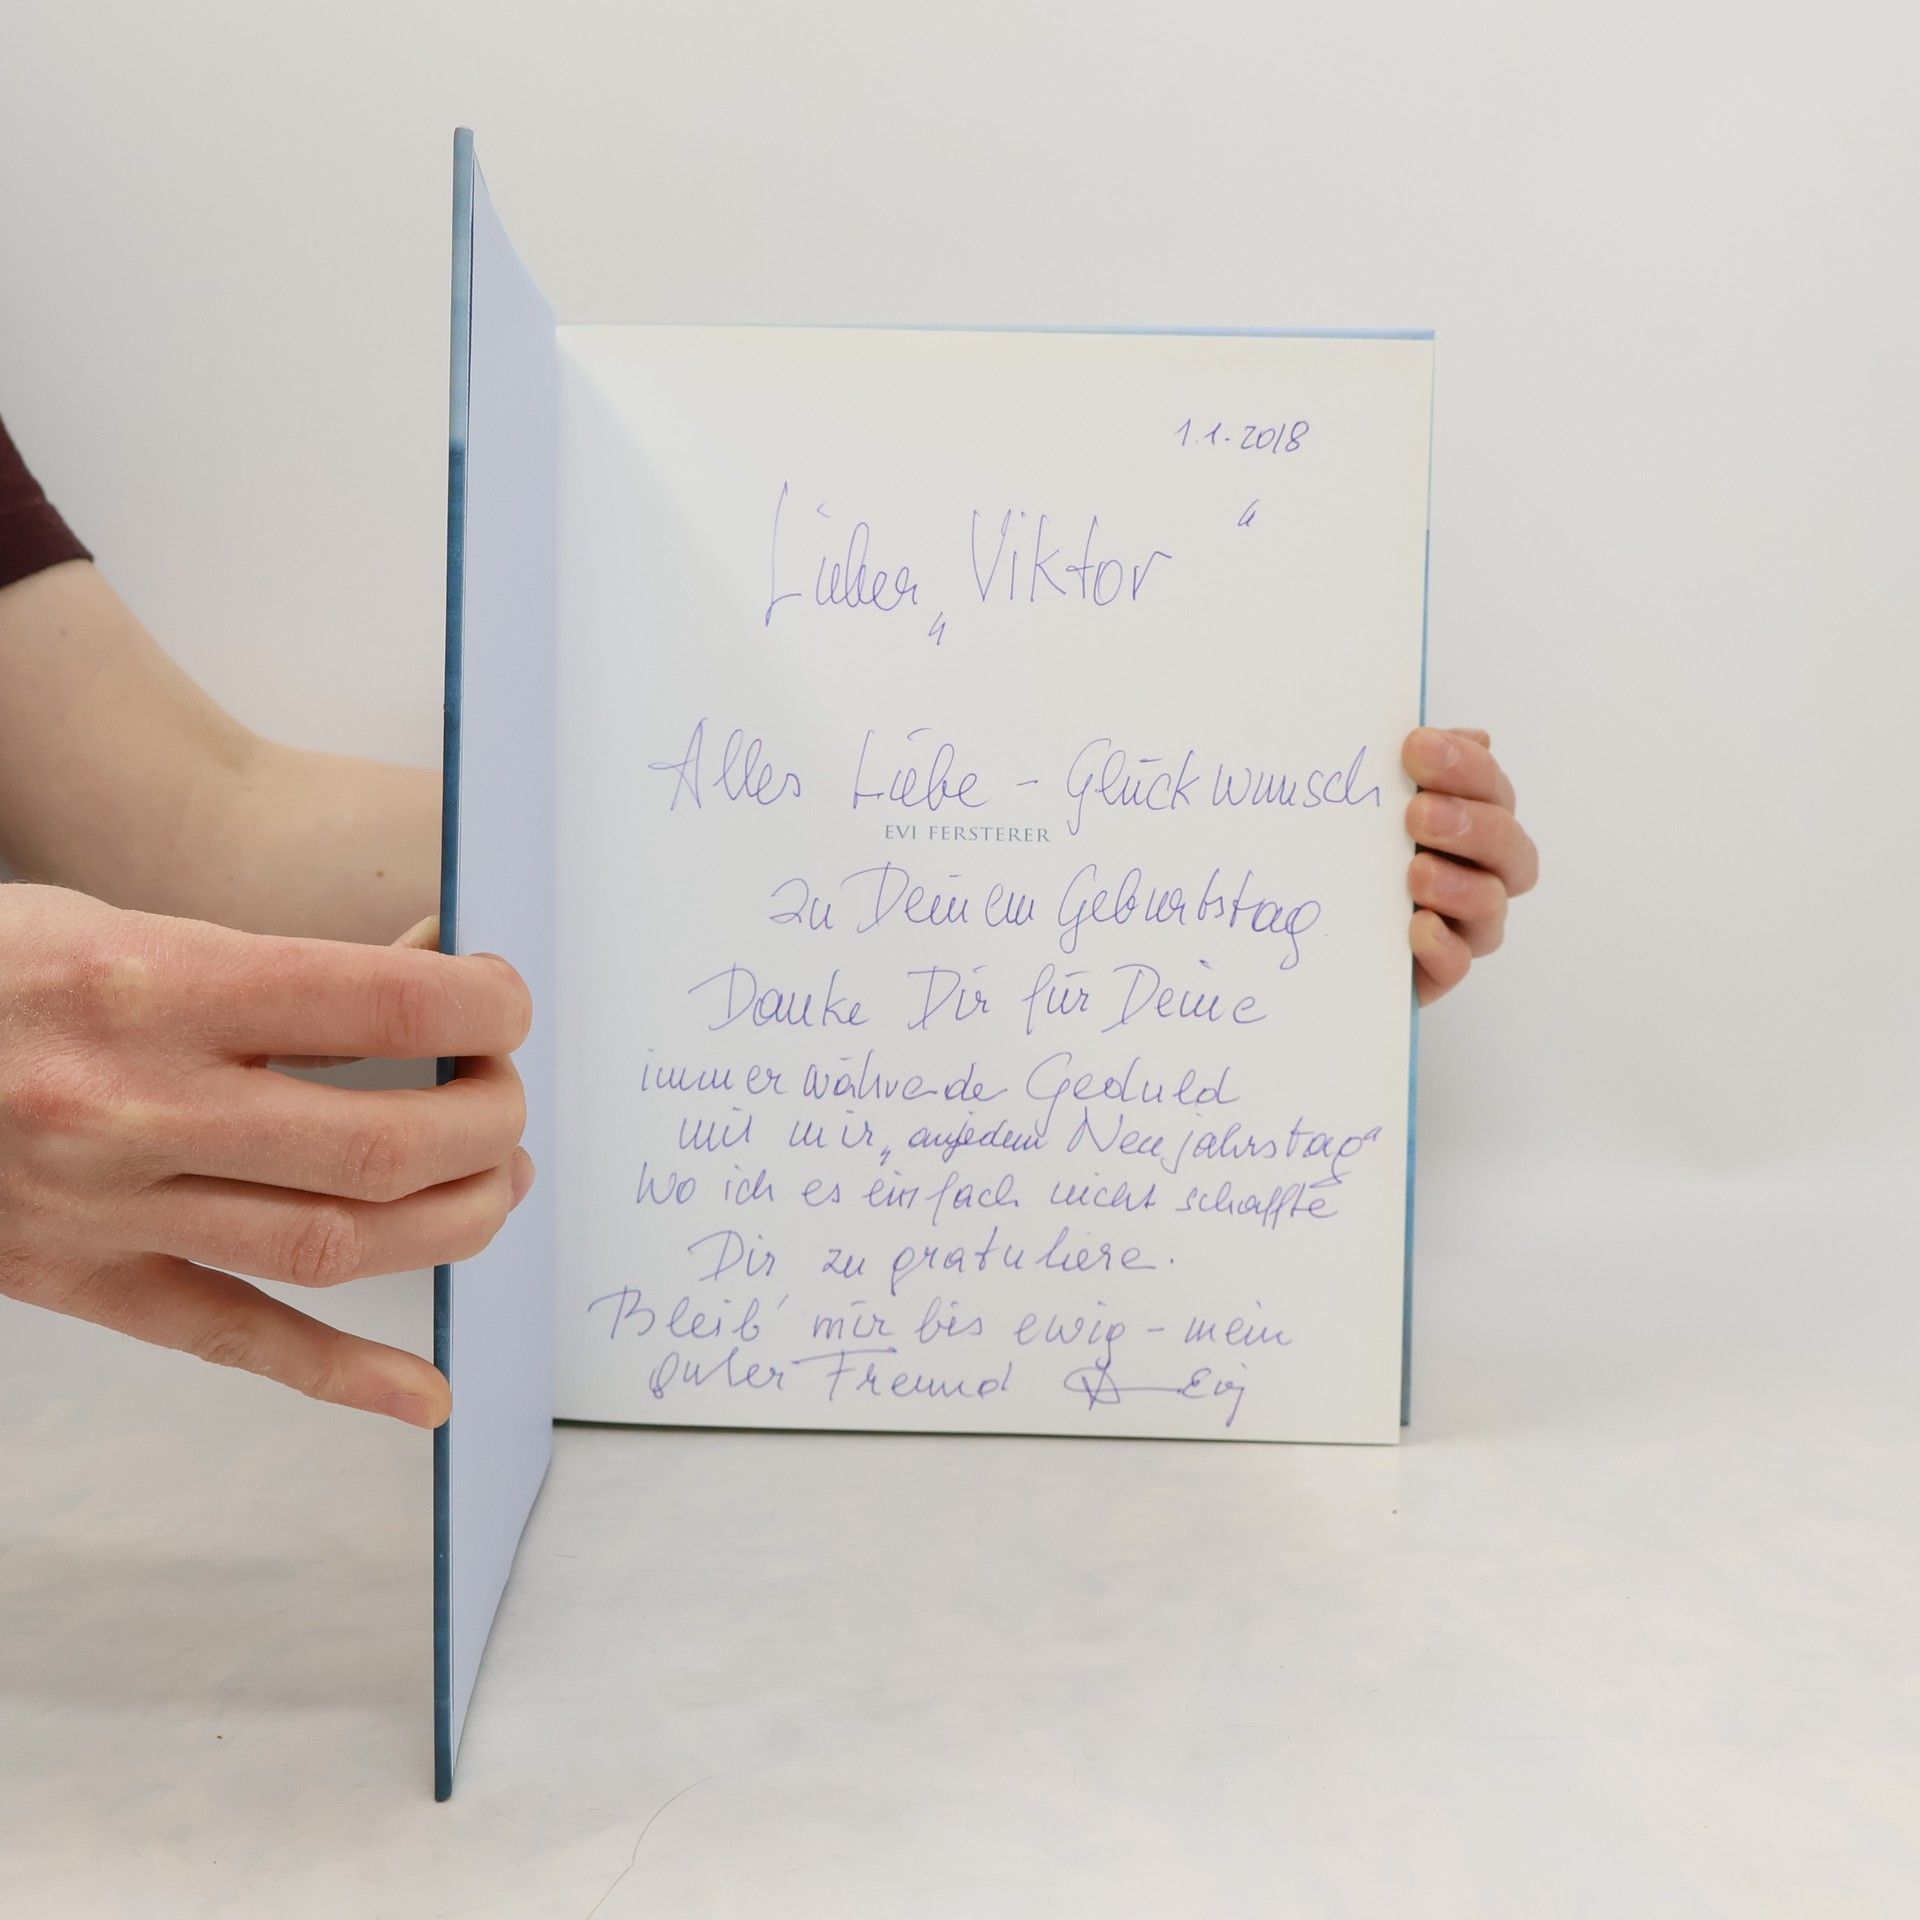 1.1.2018
Lieber „Viktor“
Alles Liebe - Glückwunsch
EVI FERSTERER
zu Deinem Geburtstag.
Danke Dir für Deine
immerwährende Geduld
mit mir „an jedem Neujahrstag“
wo ich es einfach nicht schaffte
Dir zu gratuliere.
Bleib' mir bis ewig - mein
guter Freund Evi